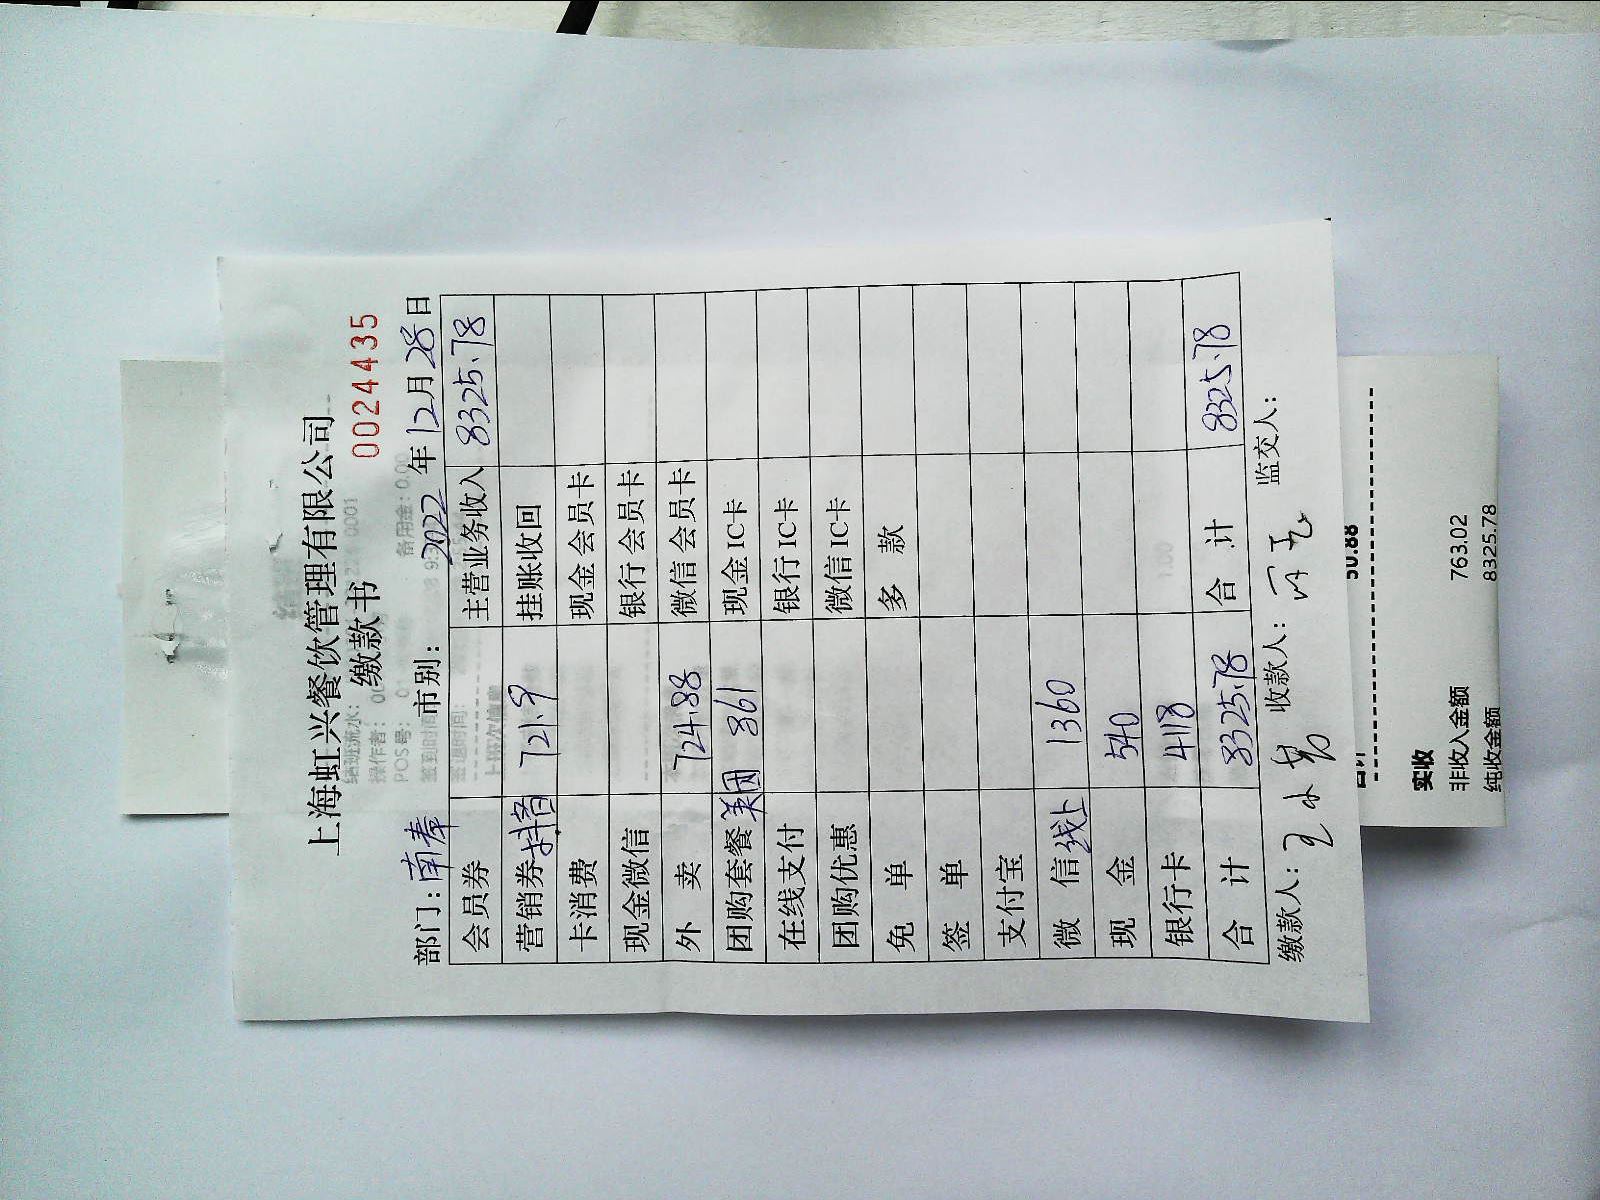 上海虹兴餐饮管理有限公司
缴款书 0024435
部门：南奉 市别： 2022年12月28日
会员券 主营业务收入 8325.78
营销券抖音 721.9 挂账收回
卡消费 现金会员卡
现金微信 银行会员卡
外卖 724.88 微信会员卡
团购套餐美团 361 现金IC卡
在线支付 银行IC卡
团购优惠 微信IC卡
免单 多款
签单
支付宝
微信线上 1360
现金 540
银行卡 418
合计 8325.78 合计 8325.78
缴款人： 收款人： 监交人：
50.88
实收
非收入金额 763.02
纯收金额 8325.78